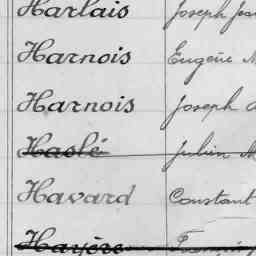 Harlais Joseph Jean
Harnois Eugène M
Harnois Joseph
Haslé Julien M
Havard Constant
Hayère